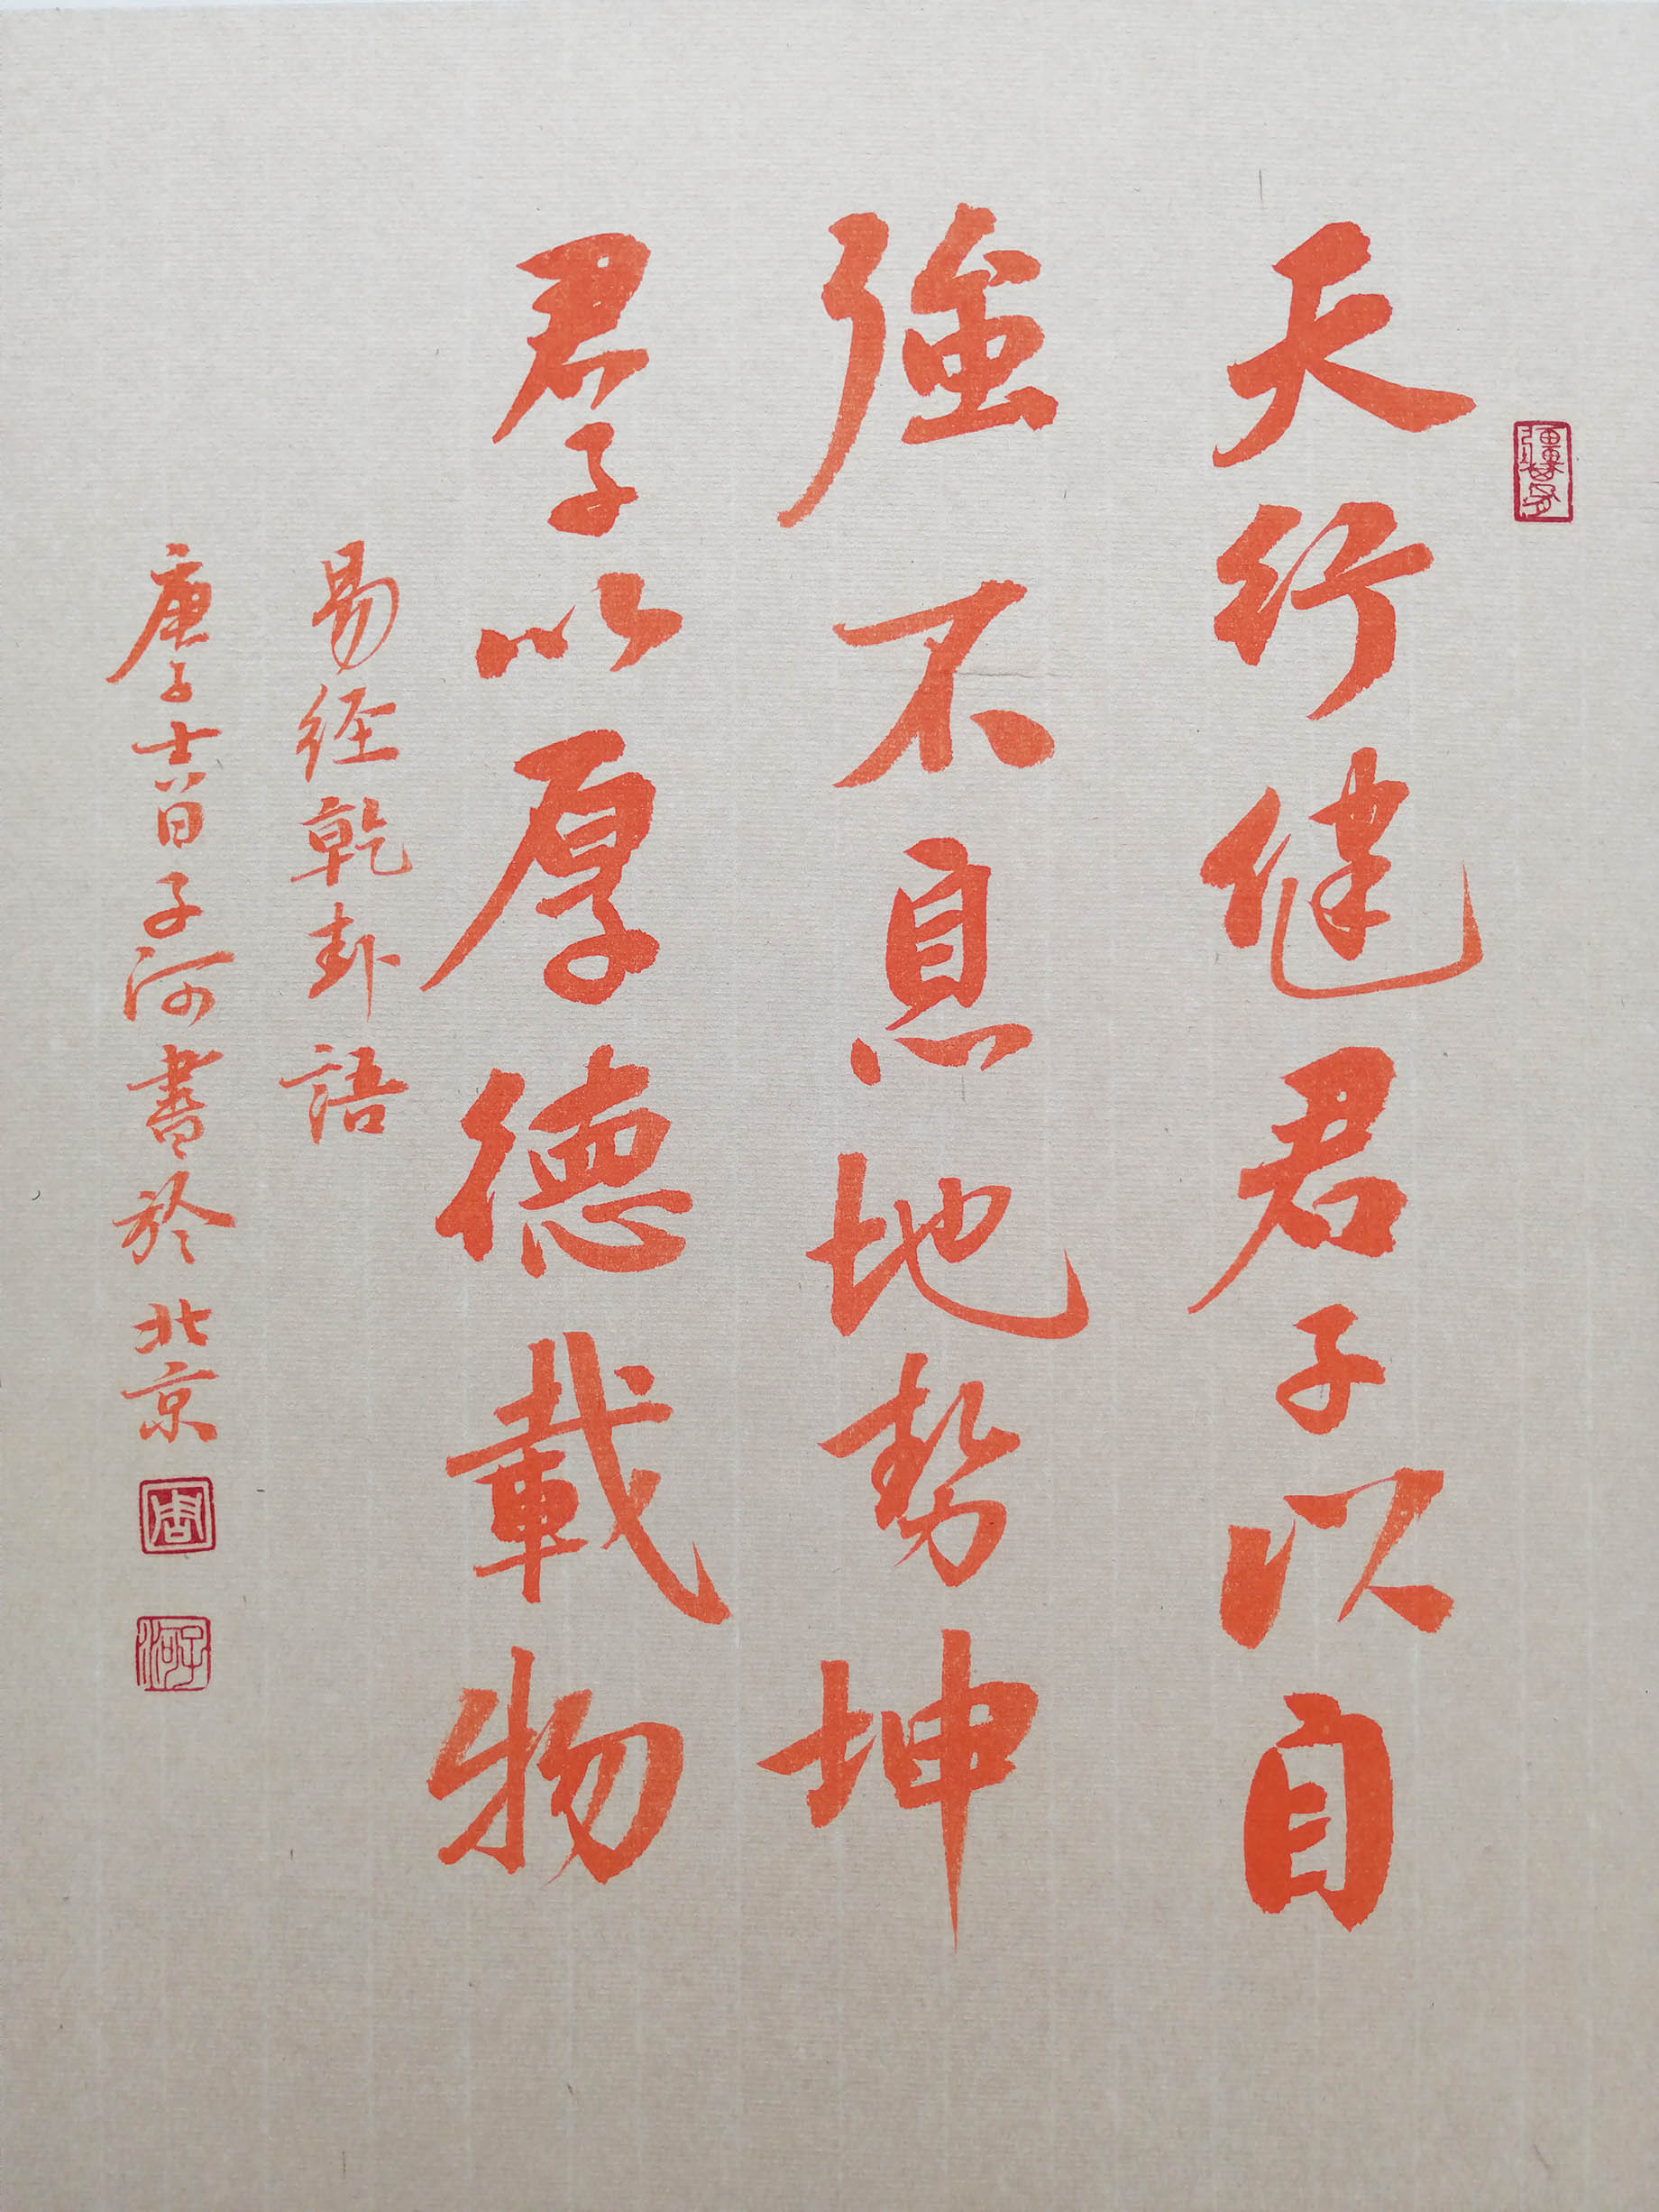 天行健君子以自
強不息地勢坤
君子以厚德載物
易经乾卦語
庚子吉日子河書於北京
周
子河